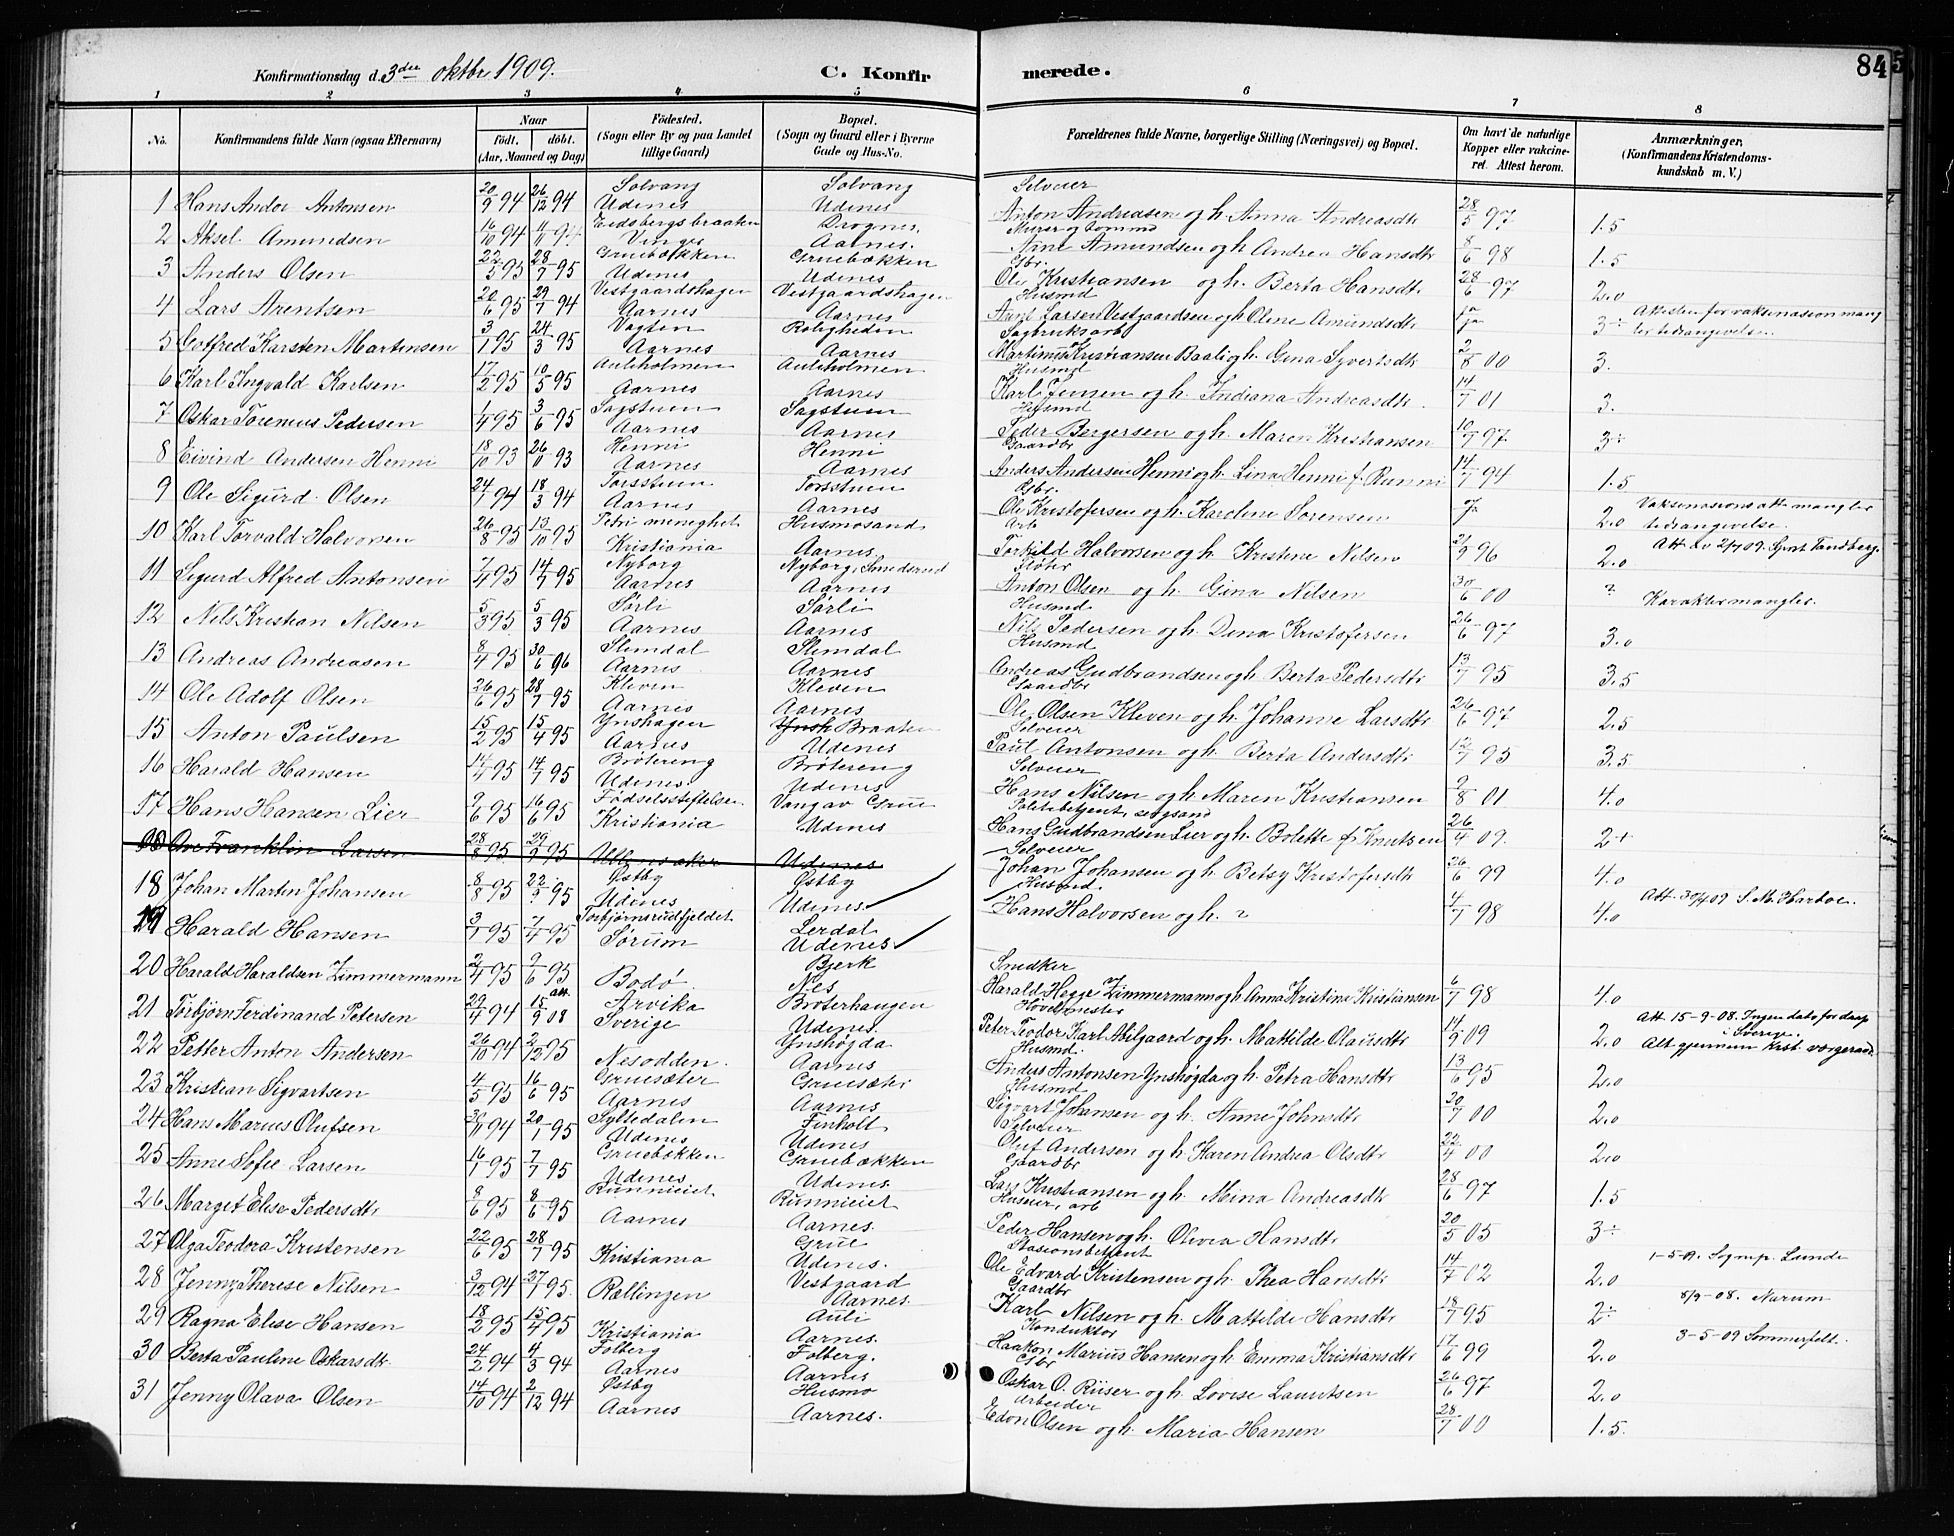 Konfirmationsdag d. 3die oktbr 1909.
C. Konfir
merede.
84
1 2 3 4 5 6 7 8
No.
Konfirmandens fulde Navn (ogsaa Efternavn)
Naar
født. døbt.
(Aar, Maaned og Dag)
Fødested.
(Sogn eller By og paa Landet
tillige Gaard)
Bopæl.
(Sogn og Gaard eller i Byerne
Gade og Hus-No.
Forældrenes fulde Navne, borgerlige Stilling (Næringsvei) og Bopæl.
Om havt de naturlige
Kopper eller vakcine-
ret. Attest herom.
Anmærkninger,
(Konfirmandens Kristendoms-
kundskab m. V.)
Solvang Solvang Selveier
1 Hans Andor Antonsen 20/9 94 26/12 94 Udenes Udenes Anton Andreasen og h. Anna Andreasdtr 28/5 97 1.5
Eidsbergsbraaten Drognes
2 Aksel Amundsen 16/10 94 Vinger Aarnes. Arne Amundsen og h. Andrea Hansdtr 8/6 98 1.5
Gruebækken Gruebækken Gbr.
3 Anders Olsen 22/5 95 28/7 95 Udenes Udenes Ole Kristiansen og h. Berta Hansdtr 28/6 97 2.0
Vestgaardshagen Vestgaardshagen Husmd
4 Lars Arentsen 20/6 95 29/7 94 Aarnes Aarnes Arent Larsen Vestgaardseie og h. Oline Amundsdtr ja 3÷ Attesten for vaksinasion mang
ler tedrangivelse.
Vagten Roligheden Sagbruksarb
5 Gotfred Karsten Martinsen 3/1 95 24/3 95 Aarnes Aarnes Martinius Kristiansen Baali og h. Gina Syvertsdtr 2/8 00 3.
Auliholmen Auliholmen Husmd
6 Karl Ingvald Karlsen 17/2 95 10/5 95 Aarnes Aarnes Karl Jensen og h. Indiana Andreasdtr. 14/7 01 3.
Sagstuen Sagstuen Husmd
7 Oskar Torenius Pedersen 1/4 95 3/6 95 Aarnes Aarnes Peder Bergersen og h. Maren Kristiansen 10/7 97 3÷
Henni Henni Gaardbr
8 Eivind Andersen Henni 18/10 93 26/11 93 Aarnes Aarnes Anders Andersen Henni og h. Lina Henni f. Runni 14/7 94 1.5
Torsstuen Torsstuen Gbr.
9 Ole Sigurd Olsen 24/1 94 18/3 94 Aarnes Aarnes Ole Kristofersen og h. Karoline Sørensen ja 2.0 Vaksinasionsatt mangler
tedrangivelse.
Petri menighet Husmosand Arb
10 Karl Torvald Halvorsen 26/8 95 13/10 95 Kristiania Aarnes Torkild Halvorsen og h. Kristine Nilsen 21/9 96 2.0 Att av 2/7 09. Gert Tandberg.
Nyborg Nyborg, Smederud Fløter
11 Sigurd Alfred Antonsen 7/4 95 14/7 95 Aarnes Aarnes Anton Olsen og h. Gina Nilsen 30/6 00 ? Karakter mangler.
Sørli Sørli Husmd.
12 Nils Kristian Nilsen 5/3 95 5/3 95 Aarnes Aarnes Nils Pedersen og h. Dina Kristofersen 26/6 97 3.0
Slemdal Slemdal Husmd
13 Andreas Andreasen 8/4 95 30/6 96 Aarnes Aarnes Andreas Gudbrandsen og h. Berta Pedersdtr 13/7 95 3.5
Kleven Kleven Gaardbr
14 Ole Adolf Olsen 26/6 95 28/7 95 Aarnes Aarnes Ole Olsen Kleven og h. Johanne Larsdtr 26/6 97 2.5
Ynshagen Ynsh Braaten Selveier
15 Anton Paulsen 15/2 95 15/4 95 Aarnes Udenes Paul Antonsen og h. Berta Andersdtr 12/7 95 3.5
Brøtereng Brøtereng Selveier
16 Harald Hansen 14/4 95 14/7 95 Udenes Udenes Hans Nilsen og h. Maren Kristiansen 9/8 01 4.0
Fødselsstiftelsen Vangav Grue Politibetjent,
17 Hans Hansen Lier 9/6 95 16/6 95 Kristiania Udenes Hans Gudbrandsen Lier og h. Bolette f. Knutsen 26/4 09. 2+
Ove Franklin Larsen 28/8 95 29/9 95 Ullensaker Udenes
Østby Østby Selveier
18 Johan Martin Johansen 8/8 95 22/9 95 Udenes Udenes Johan Johansen og h. Betsy Kristofersdtr 26/6 99 4.0
Torbjørnsrudfjeldet Lerdal Husmd.
19 Harald Hansen 3/1 95 7/4 95 Sørum Udenes Hans Halvorsen og h. ? 4/7 98 4.0 Att. 30/4 09 S. M. Harboe.
Bjerk Snedker
20 Harald Haraldsen Zimmermann 2/4 95 9/6 95 Bodø. Nes Harald Hegge Zimmermann og h. Anna Kristine Kristiansen 6/7 98 4.0
Arvika Brøterhaugen Hovedmester
21 Torbjørn Ferdinand Petersen 29/4 94 att. 15/9 08 Sverige Udenes. Peter Teodor Karl Abilgaard og h. Mattilde Olausdtr 14/9 09 2.0 Att. 15-9-08. Ingen dato for daap
i Sverige.
Att gjennem Krist.
Ynshøgda Husmd.
22 Petter Anton Andersen 26/10 94 2/12 95 Nesodden. Aarnes Anders Antonsen Ynshøgda og h. Petra Hansdtr 13/6 95 2.0
Gruesæter Gruesæter Husmd
23 Kristian Sigvartsen 4/5 95 16/6 95 Aarnes Aarnes Sigvart Johansen og h. Anne Johnsdtr 20/7 00 2.0
Syltedalen Finholt Selveier
24 Hans Marius Olufsen 30/11 94 20/1 95 Udenes Udenes Oluf Andersen og h. Karen Andrea Olsdtr 22/4 00 2.0
Gruebækken Gruebækken Gaardbr
25 Anne Sofie Larsen 16/1 95 7/7 95 Udenes Udenes. Lars Kristiansen og h. Mina Andreasdtr 28/6 97 1.5
Runnieiet Runnieiet Huseier, arb
26 Marget Elise Pedersdtr 8/6 95 8/6 95 Aarnes Aarnes. Peder Hansen og h. Olivia Hansdtr 20/5 05 3÷
Grue Stasionsbetjent
27 Olga Teodora Kristensen 22/6 95 28/7 95 Kristiania Udenes. Ole Edvard Kristensen og h. Thea Hansdtr 14/7 02 2.0 1-5-09. Sogmp. Lunde
Vestgaard Gaardbr
28 Jenny Therese Nilsen 3/12 94 27/ 95 Rællingen Aarnes. Karl Nilsen og h. Mattilde Hansdtr. 18/7 95 2÷ 8/9-08. Narum
Auli Konduktør
29 Ragna Elise Hansen 18/2 95 15/4 95 Kristiania Aarnes. Haakon Marius Hansen og h. Emma Kristiansdtr 17/6 99 2.0 3-5-09 Sommerfelt.
Folberg Folberg. Gbr
30 Berta Pauline Oskarsdtr. 24/2 94 4/3 94 Aarnes Aarnes Oskar O. Riiser og h. Lovise Lauritsen 26/6 97 2.0
Østby Husmo Arbeider
31 Jenny Olava Olsen 14/10 94 2/12 94 Aarnes Aarnes. Edon Olsen og h. Maria Hansen 28/7 00 1.5.